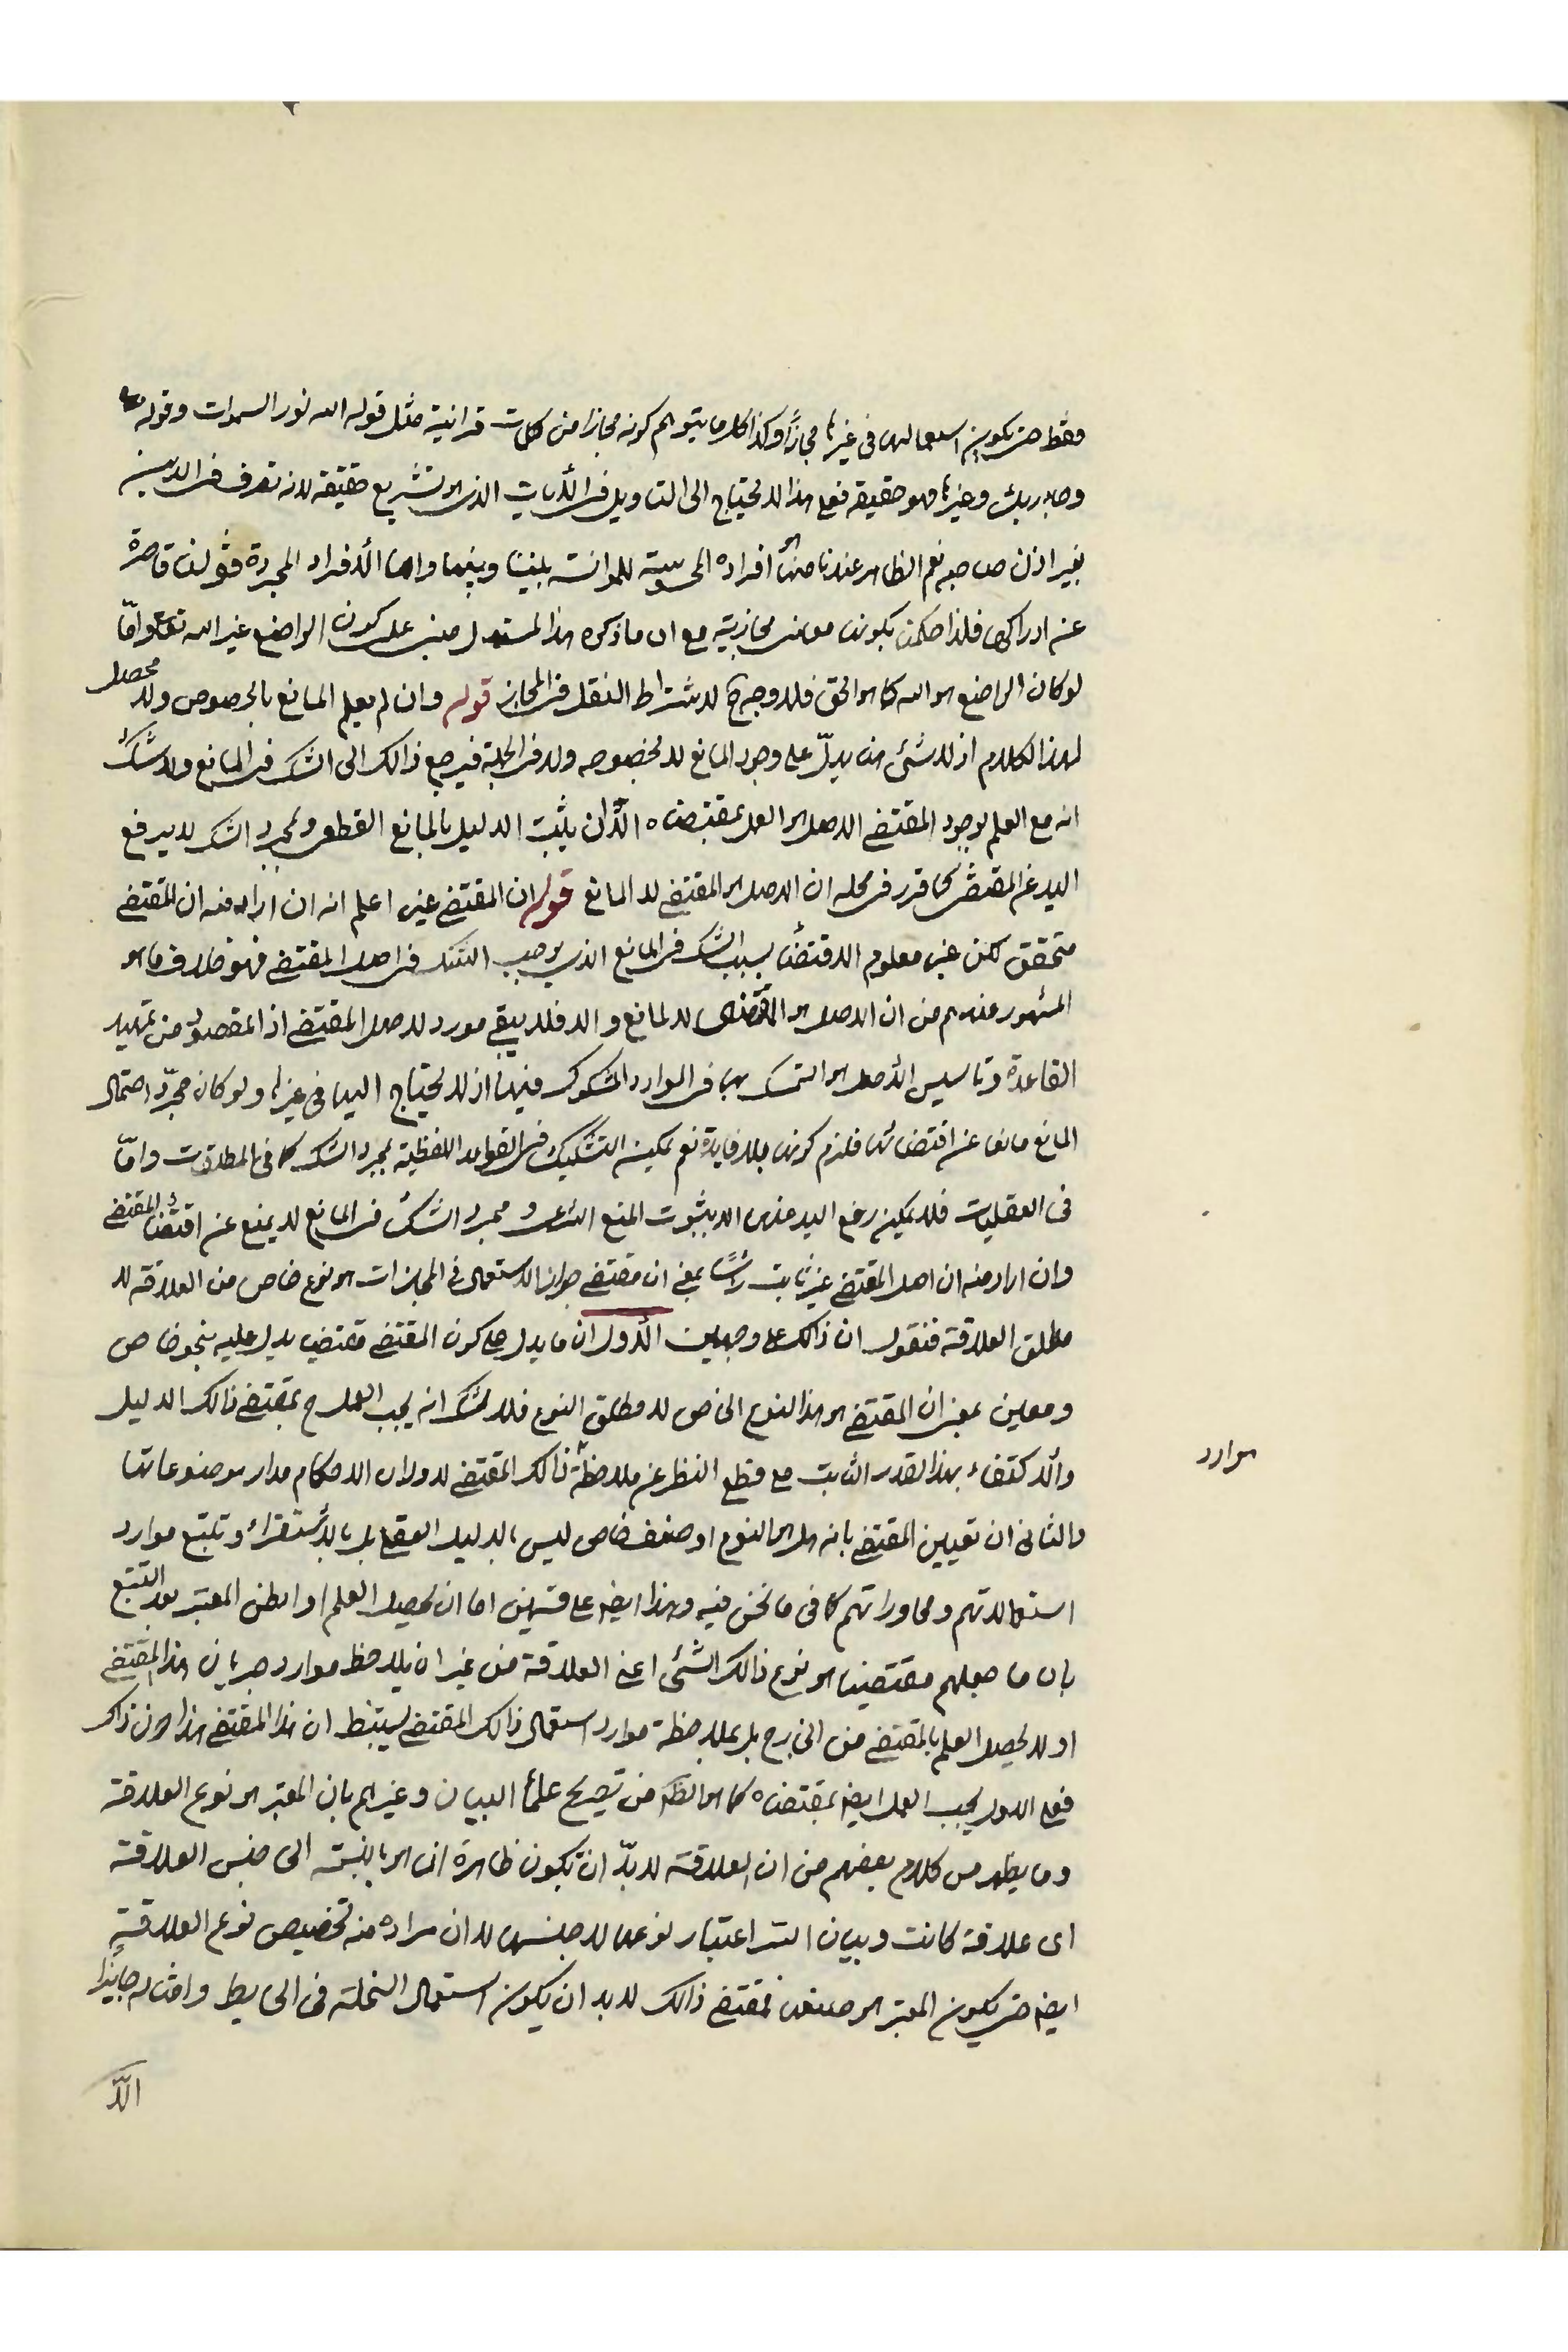 فقط حتى يكون استعمالها فى غيرها مجازًا وكذا كلما يتوهم كونه مجازا من كلمات قرانية مثل قوله الله نور السموات وقوله تع
وجاء ربك وغيرها فهو حقيقة فعلى هذا لا يحتاج الى التاويل فى الآيات الذى هو تشريع حقيقة لانه تصرف فى الدين
بغير اذن صاحبه نعم الظاهر عندنا منها هو افراده المحسوسة للموانسة بيننا وبينها واما الأفراد المجردة فعقولنا قاصرة
عن ادراكها فلذا حكمنا بكونها معانى مجازية مع ان ما ذكره هذا المستدل مبنى على كون الواضع غير الله تعالى وامّا
لو كان الواضع هو الله كما هو الحق فلا وجه ح لاشتراط النقل فى المجاز قوله وان لم يعلم المانع بالخصوص ولا محصل
لهذا الكلام اذ لا شئ هنا يدلّ على وجود المانع لا بخصوصه ولا فى الجملة فيرجع ذالك الى الشك فى المانع ولا شكّ
انه مع العلم بوجود المقتضى الاصل هو العمل بمقتضاه الّا ان يثبت الدليل بالمانع القطعى وبمجرد الشك لا يرفع
اليد عن المقتضى كما قرر فى محله ان الاصل هو المقتضى لا المانع قوله ان المقتضى غير اعلم انه ان اراد منه ان المقتضى
متحقق لكن غير معلوم الاقتضاء بسبب الشك فى المانع الذى يوجب الشك فى اصل المقتضى فهو خلاف ما هو
المشهور عندهم من ان الاصل هو المقتضى لا المانع والا فلا يبقى مورد لاصل المقتضى اذ المقصود من تمهيد
القاعدة وتاسيس الأصل هو التمسك بها فى الموارد المشكوك فيها اذ لا يحتاج اليها فى غيرها ولو كان مجرّد احتمال
المانع مانعا عن اقتضائها فلزم كونها بلا فايدة نعم يمكن التشكيك فى القواعد اللفظية بمجرد الشك كما فى المطلقات وامّا
فى العقليات فلا يمكن رفع اليد عنها الا بثبوت المنع الشرعى و مجرد الشك فى المانع لا يمنع عن اقتضاء المقتضى
وان اراد منه ان اصل المقتضى غير ثابت رأسًا بمعنى ان مقتضى جواز الاستعمال فى المجازات هو نوع خاص من العلاقة لا
مطلق العلاقة فنقول ان ذالك على وجهين الأول ان ما يدل على كون المقتضى مقتضيا يدل عليه بنحو خاص
ومعين بمعنى ان المقتضى هو هذا النوع الخاص لا مطلق النوع فلا شك انه يجب العمل ح بمقتضى ذالك الدليل
والاكتفاء بهذا القدر الثابت مع قطع النظر عن ملاحظة ذالك المقتضى لدوران الاحكام مدار موضوعاتها
والثانى ان تعيين المقتضى بانه هل هو النوع او صنف خاص ليس بالدليل العقلى بل بالأستقراء وتتبع موارد
استعمالاتهم ومحاوراتهم كما فى ما نحن فيه وهذا ايضا على قسمين اما ان يحصل العلم او الظن المعتبر بعد التتبع
بان ما جعلهم مقتضيا هو نوع ذالك الشئ اعنى العلاقة من غير ان يلاحظ موارد جريان هذا المقتضى
او لا يحصل العلم بالمقتضى من الخارج بل بملاحظة موارد استعمال ذالك المقتضى يستنبط ان هذا المقتضى هذا دون ذاك
فعلى الاول يجب العمل ايضا بمقتضاه كما هو الظ من تصريح علماء البيان وغيرهم بان المعتبر هو نوع العلاقة
وما يظهر من كلام بعضهم من ان العلاقة لا بدّ ان تكون ظاهرة انما هو بالنسبة الى جنس العلاقة
اى علاقة كانت وبيان اعتبار نوعها لا جنسها لا ان مراده منه تخصيص نوع العلاقة
ايضا حتى يكون المعتبر هو صنفها فمقتضى ذالك لا بد ان يكون استعمال النخلة فى الحايط وامثاله جايزا
الّا
موارد